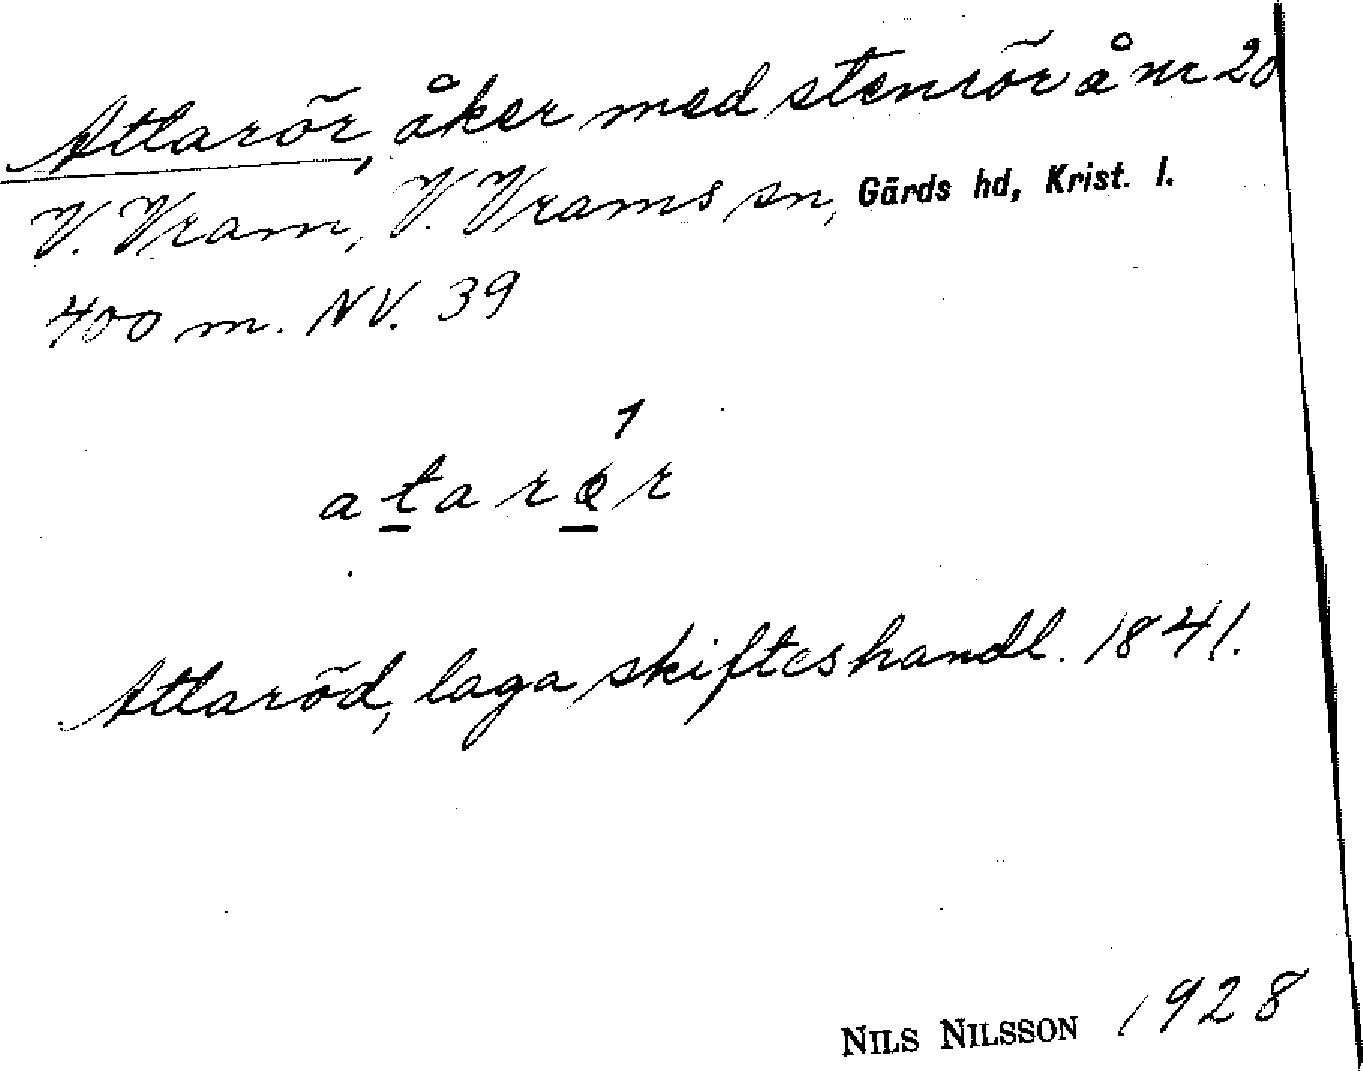 Attarör, åker med stenrör å nr 20
V. Vram, V. Vrams sn, Gärds hd, Krist. l.
400 m. NV. 39
1
atarør
Attaröd, laga skifteshandl. 1841.
NILS NILSSON 1928